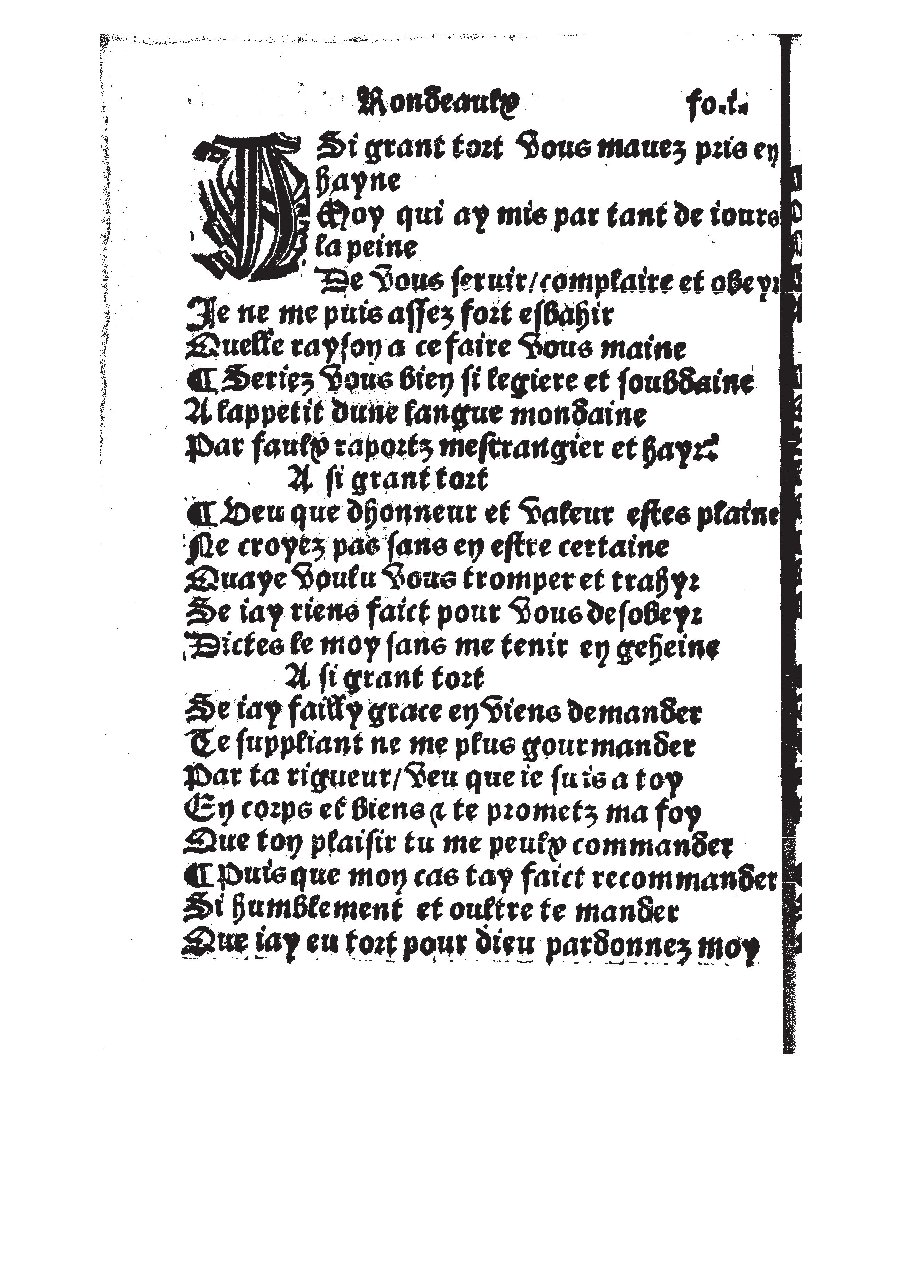 Rondeaulx fo.i.
A Si grant tort vous mauez pris en
hayne
Moy qui ay mis par tant de iours
la peine
De vous seruir/complaire et obeyr
Je ne me puis assez fort esbahir
Quelle rayson a ce faire vous maine
¶ Seriez vous bien si legiere et soubdaine
A lappetit dune langue mondaine
Par faulx raportz mestrangier et hayr
A si grant tort
¶ Veu que dhonneur et valeur estes plaine
Ne croyez pas sans en estre certaine
Quaye voulu vous tromper et trahyr
Se iay riens faict pour vous desobeyr
Dictes le moy sans me tenir en geheine
A si grant tort
Se iay failly grace en viens demander
Te suppliant ne me plus gourmander
Par ta rigueur/veu que ie suis a toy
En corps et biens & te prometz ma foy
Que ton plaisir tu me peulx commander
¶ Puis que mon cas tay faict recommander
Si humblement et oultre te mander
Que iay eu tort pour dieu pardonnez moy